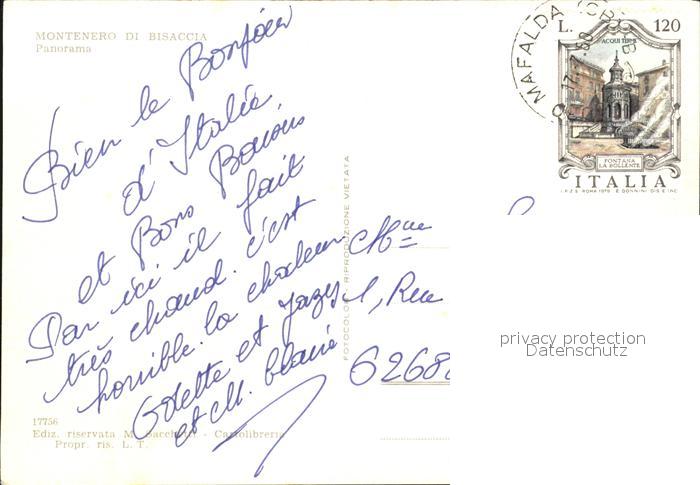 MONTENERO DI BISACCIA
Panorama
Bien le Bonjour
d'Italie
et Bons Baisers
Par ici il fait
très chaud. c'est
horrible. la chaleur
Odette et
et M.
17756
Ediz. riservata M. - Cartolibreria
Propr. ris. L. T.
RIPRODUZIONE VIETATA
MAFALDA (CB)
L. 120
ACQUI TERME
FONTANA
LA BOLLENTE
ITALIA
I.P.Z.S. ROMA 1978 E. DONNINI DIS. E INC.
Mme
1, Rue
6268
privacy protection
Datenschutz